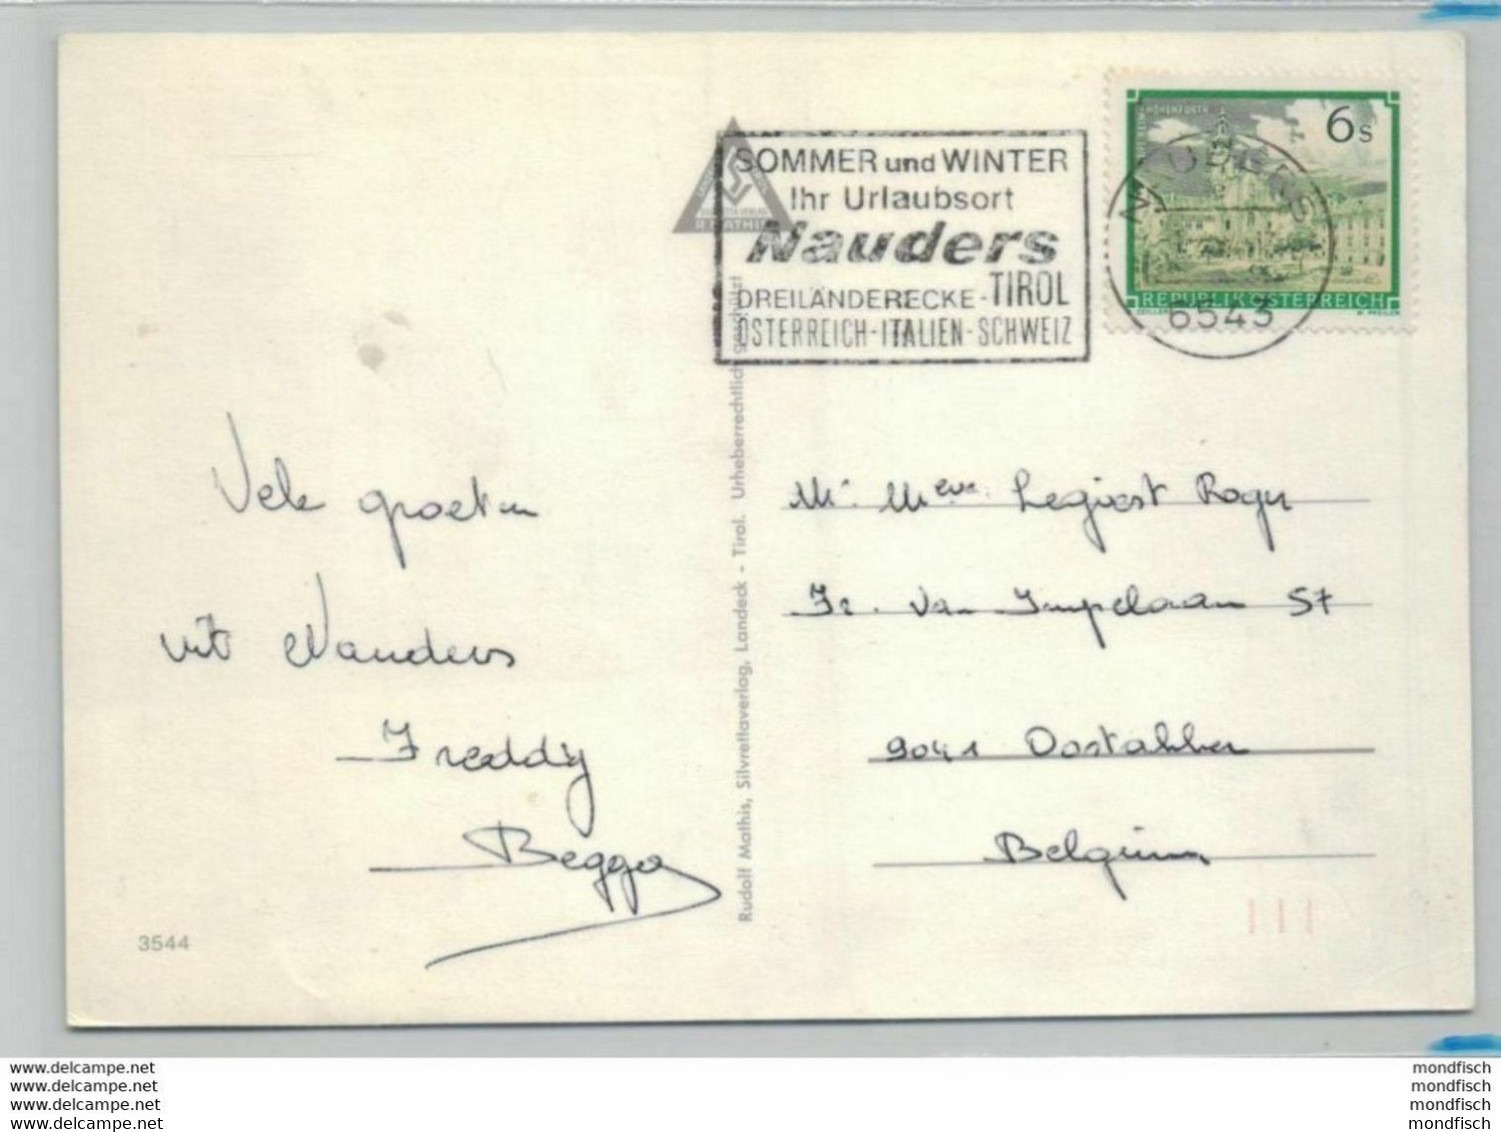 SOMMER und WINTER
Ihr Urlaubsort
Nauders
DREILÄNDERECKE - TIROL
ÖSTERREICH - ITALIEN - SCHWEIZ
6s
REPUBLIK ÖSTERREICH
NAUDERS
6543
R. MATHIS
Vele groeten
uit Nauders
Freddy
Begga
3544
Rudolf Mathis, Silvrettaverlag, Landeck - Tirol. Urheberrechtlich geschützt
Mr Mevr. Legiest Roger
Fr. Van Impelaan 57
9041 Oostakker
Belgium
www.delcampe.net
www.delcampe.net
www.delcampe.net
www.delcampe.net
mondfisch
mondfisch
mondfisch
mondfisch